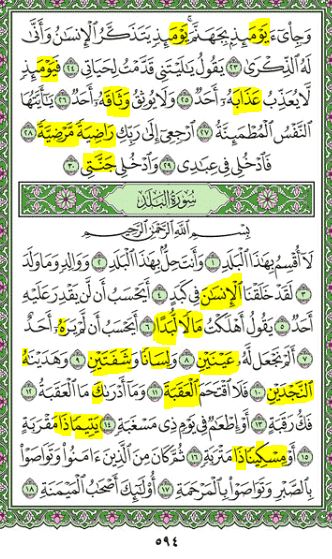 وَجِا۟يٓءَ يَوۡمَئِذِۭ بِجَهَنَّمَۚ يَوۡمَئِذٖ يَتَذَكَّرُ ٱلۡإِنسَٰنُ وَأَنَّىٰ
لَهُ ٱلذِّكۡرَىٰ ٢٣ يَقُولُ يَٰلَيۡتَنِي قَدَّمۡتُ لِحَيَاتِي ٢٤ فَيَوۡمَئِذٖ
لَّا يُعَذِّبُ عَذَابَهُۥٓ أَحَدٞ ٢٥ وَلَا يُوثِقُ وَثَاقَهُۥٓ أَحَدٞ ٢٦ يَٰٓأَيَّتُهَا
ٱلنَّفۡسُ ٱلۡمُطۡمَئِنَّةُ ٢٧ ٱرۡجِعِيٓ إِلَىٰ رَبِّكِ رَاضِيَةٗ مَّرۡضِيَّةٗ ٢٨
فَٱدۡخُلِي فِي عِبَٰدِي ٢٩ وَٱدۡخُلِي جَنَّتِي ٣٠
سُورَةُ البَلَدِ
بِسۡمِ ٱللَّهِ ٱلرَّحۡمَٰنِ ٱلرَّحِيمِ
لَآ أُقۡسِمُ بِهَٰذَا ٱلۡبَلَدِ ١ وَأَنتَ حِلُّۢ بِهَٰذَا ٱلۡبَلَدِ ٢ وَوَالِدٖ وَمَا وَلَدَ
٣ لَقَدۡ خَلَقۡنَا ٱلۡإِنسَٰنَ فِي كَبَدٍ ٤ أَيَحۡسَبُ أَن لَّن يَقۡدِرَ عَلَيۡهِ
أَحَدٞ ٥ يَقُولُ أَهۡلَكۡتُ مَالٗا لُّبَدًا ٦ أَيَحۡسَبُ أَن لَّمۡ يَرَهُۥٓ أَحَدٌ
٧ أَلَمۡ نَجۡعَل لَّهُۥ عَيۡنَيۡنِ ٨ وَلِسَانٗا وَشَفَتَيۡنِ ٩ وَهَدَيۡنَٰهُ
ٱلنَّجۡدَيۡنِ ١٠ فَلَا ٱقۡتَحَمَ ٱلۡعَقَبَةَ ١١ وَمَآ أَدۡرَىٰكَ مَا ٱلۡعَقَبَةُ ١٢
فَكُّ رَقَبَةٍ ١٣ أَوۡ إِطۡعَٰمٞ فِي يَوۡمٖ ذِي مَسۡغَبَةٖ ١٤ يَتِيمٗا ذَا مَقۡرَبَةٍ
١٥ أَوۡ مِسۡكِينٗا ذَا مَتۡرَبَةٖ ١٦ ثُمَّ كَانَ مِنَ ٱلَّذِينَ ءَامَنُواْ وَتَوَاصَوۡاْ
بِٱلصَّبۡرِ وَتَوَاصَوۡاْ بِٱلۡمَرۡحَمَةِ ١٧ أُوْلَٰٓئِكَ أَصۡحَٰبُ ٱلۡمَيۡمَنَةِ ١٨
٥٩٤